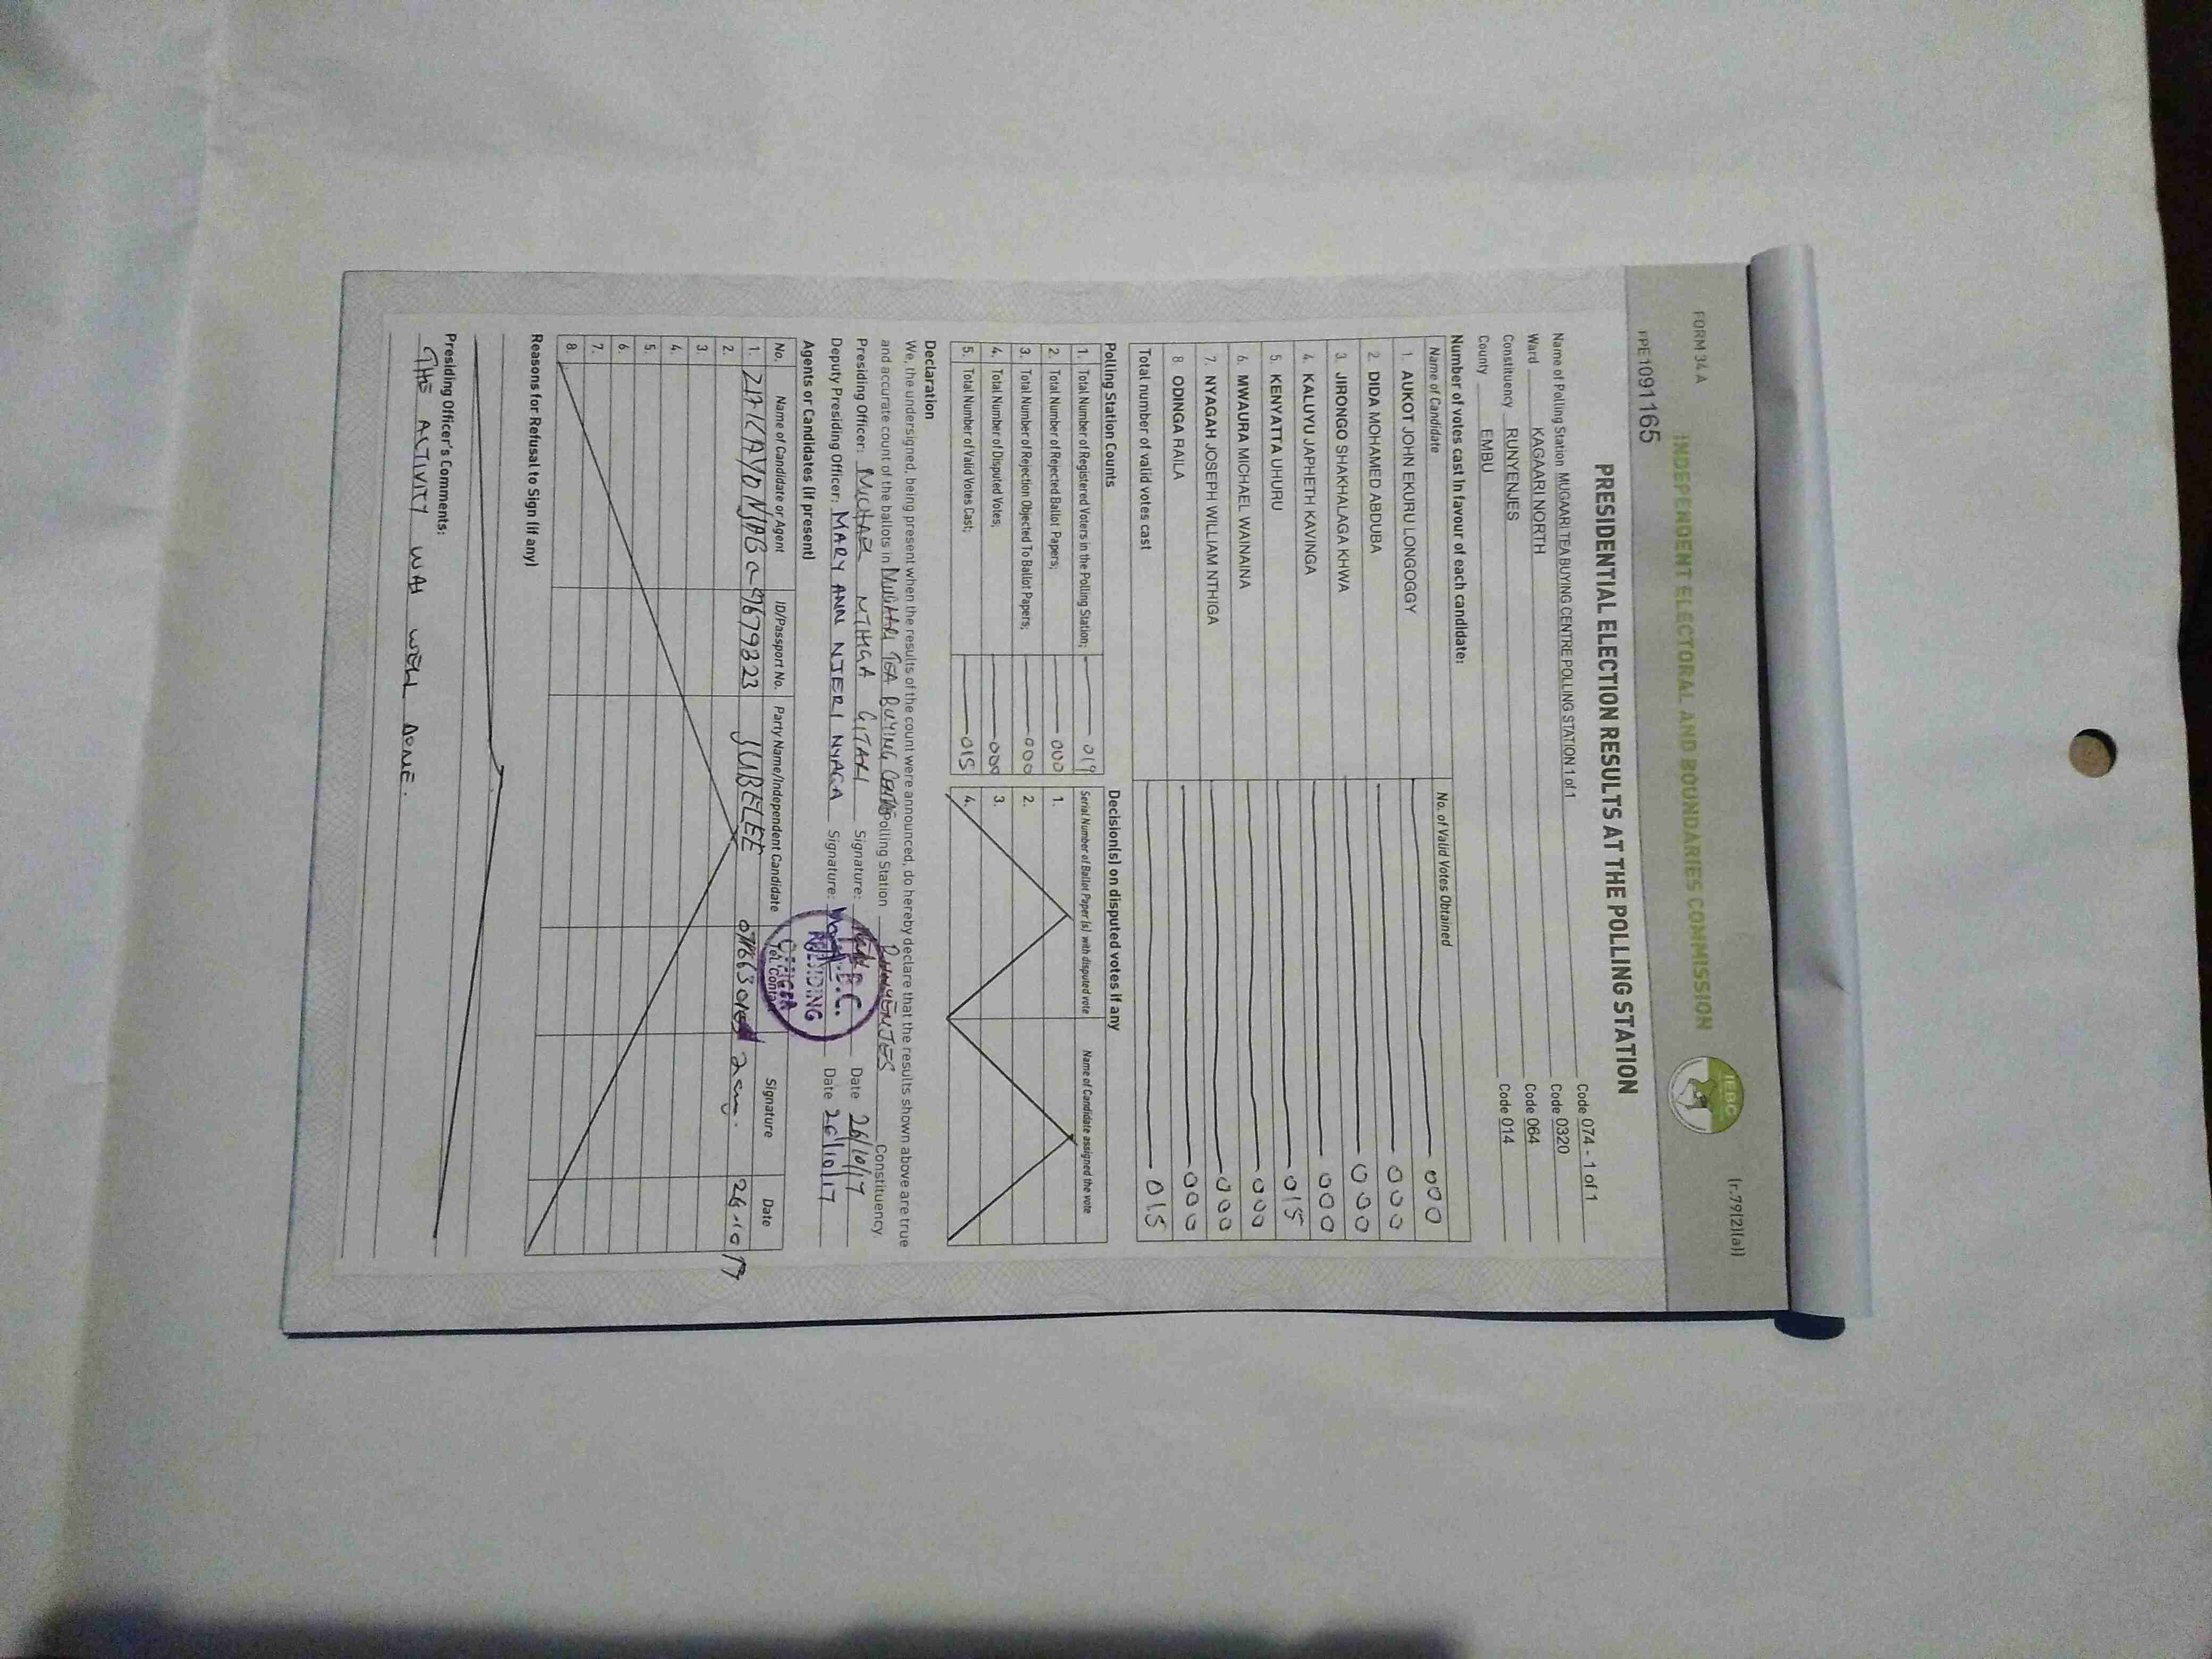 FORM 34 A
(r.79(2)(a))
INDEPENDENT ELECTORAL AND BOUNDARIES COMMISSION
IEBC
PPE1091165
PRESIDENTIAL ELECTION RESULTS AT THE POLLING STATION
Name of Polling Station MUGAARI TEA BUYING CENTRE POLLING STATION 1 of 1 Code 074 - 1 of 1
Ward KAGAARI NORTH Code 0320
Constituency RUNYENJES Code 064
County EMBU Code 014
Number of votes cast in favour of each candidate:
Name of Candidate No. of Valid Votes Obtained
1. AUKOT JOHN EKURU LONGOGGY 000
2. DIDA MOHAMED ABDUBA 000
3. JIRONGO SHAKHALAGA KHWA 000
4. KALUYU JAPHETH KAVINGA 000
5. KENYATTA UHURU 015
6. MWAURA MICHAEL WAINAINA 000
7. NYAGAH JOSEPH WILLIAM NTHIGA 000
8. ODINGA RAILA 000
Total number of valid votes cast 015
Polling Station Counts
1. Total Number of Registered Voters in the Polling Station; 019
2. Total Number of Rejected Ballot Papers; 000
3. Total Number of Rejection Objected To Ballot Papers; 000
4. Total Number of Disputed Votes; 000
5. Total Number of Valid Votes Cast; 015
Decision(s) on disputed votes if any
Serial Number of Ballot Paper (s) with disputed vote Name of Candidate assigned the vote
1.
2.
3.
4.
Declaration
We, the undersigned, being present when the results of the count were announced, do hereby declare that the results shown above are true
and accurate count of the ballots in MUGAARI TEA BUYING Centre Polling Station RUNYENJES Constituency.
Presiding Officer: MICHAEL NTHIGA GITARI Signature: Date 26/10/17
Deputy Presiding Officer: MARY ANN NJERI NYAGA Signature: Date 26/10/17
I.E.B.C.
PRESIDING
OFFICER
Agents or Candidates (if present)
No. Name of Candidate or Agent ID/Passport No. Party Name/Independent Candidate Tel. Contact Signature Date
1. 9679823 JUBELEE 26.10.17
2.
3.
4.
5.
6.
7.
8.
Reasons for Refusal to Sign (if any)
Presiding Officer's Comments:
THE ACTIVITY WAS WELL DONE.